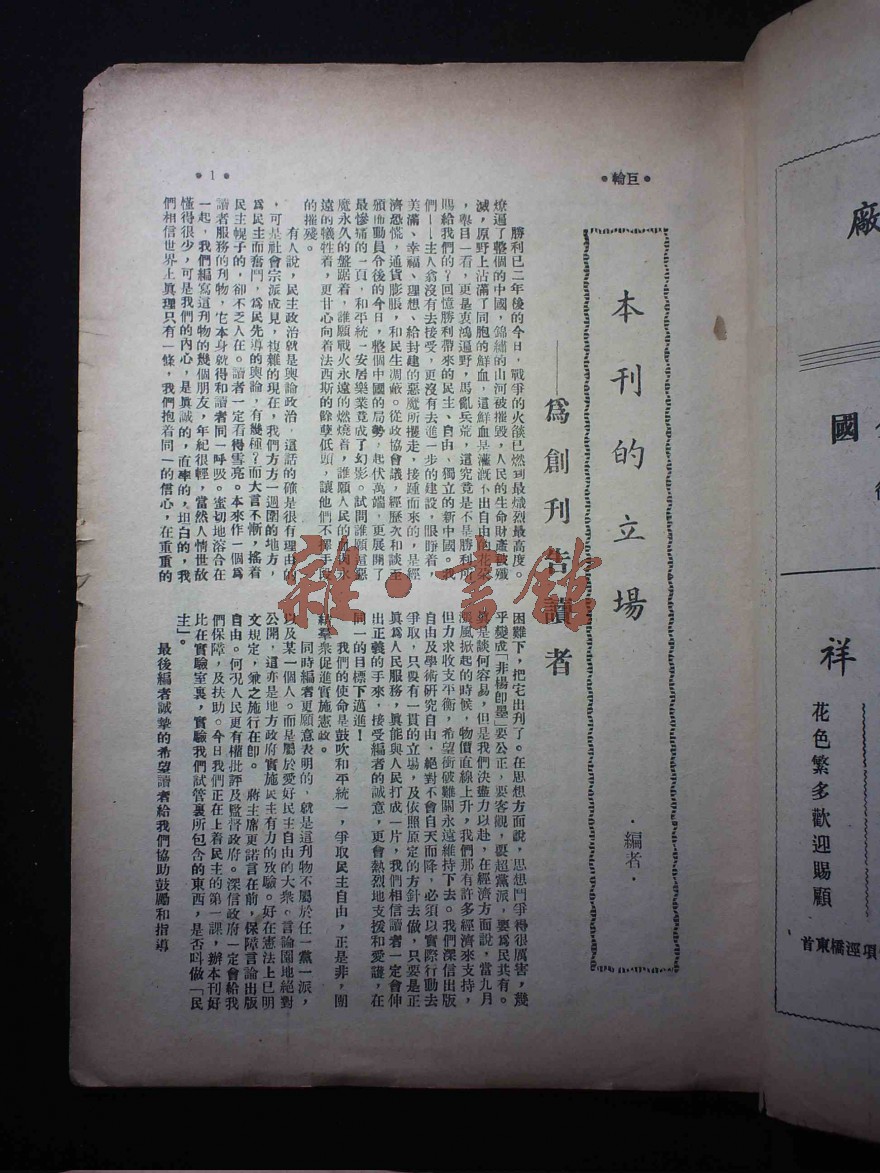 ●巨輪●
本刊的立場
——爲創刊告讀者
·編者·
勝利已二年後的今日，戰爭的火燄已燃到最熾烈最高度。
燎遍了整個的中國，錦繡的山河被摧毀，人民的生命財產被殲
滅，原野上沾滿了同胞的鮮血，這鮮血是灌漑不出自由的花朶
，舉目一看，更是哀鴻遍野，馬亂兵荒，這究竟是不是勝利所
賜給我們的？回憶勝利帶來的民主、自由、獨立的新中國。我
們——主人翁沒有去接受，更沒有去進一步的建設，眼睜着，
美滿、幸福、理想、給封建的惡魔所攫走，接踵而來的，是經
濟恐慌，通貨膨脹，和民生凋蔽。從政協會議，經歷次和談至
頒佈動員令後的今日，整個中國的局勢，起伏萬端，更展開了
最慘痛的一頁，和平統一安居樂業竟成了幻影。試問誰願
魔永久的盤踞着，誰願戰火永遠的燃燒着，誰願人民的血肉永
遠的犧牲着，更甘心向着法西斯的餘孽低頭，讓他們不擇手段
的摧殘。
有人說，民主政治就是輿論政治，這話的確是很有理由的
，可是社會宗派成見，複雜的現在，我們方方一週圍的地方，
爲民主而奮鬥，爲民先導的輿論，有幾種？而大言不漸，搖着
民主幌子的，卻不乏人在。讀者一定看得雪亮。本來作一個爲
讀者服務的刊物，它本身就得和讀者同一呼吸。蜜切地溶合在
一起，我們編寫這刊物的幾個朋友，年紀很輕，當然人情世故
懂得很少，可是我們的內心，是眞誠的，直率的，坦白的，我
們相信世界上眞理只有一條，我們抱着同一的信心，在重重的
困難下，把它出刋了。在思想方面說，思想鬥爭得很厲害，幾
乎變成「非楊卽墨」要公正，要客觀，要超黨派，要爲民共有。
眞是談何容易，但是我們決盡力以赴，在經濟方面說，當九月
漲風掀起的時候，物價直線上升，我們那有許多經濟來支持，
但力求收支平衡，希望衝破難關永遠維持下去。我們深信出版
自由及學術研究自由，絕對不會自天而降，必須以實際行動去
爭取，只要有一貫的立場，及依照原定的方針去做，只要是正
眞爲人民服務，眞能與人民打成一片，我們相信讀者一定會伸
出正義的手來，接受編者的誠意，更會熱烈地支援和愛護，在
同一的目標下邁進！
我們的使命是鼓吹和平統一，爭取民主自由，正是非，團
結羣衆促進實施憲政。
同時編者更願意表明的，就是這刊物不屬於任一黨一派，
以及某一個人。而是屬於愛好民主自由的大衆。言論園地絕對
公開，這亦是地方政府實施民主有力的效驗。好在憲法上已明
文規定，兼之施行在卽。　蔣主席更諾言在前，保障言論出版
自由。何況人民更有權批評及監督政府。深信政府一定會給我
們保障，及扶助。今日我們正在上着民主的第一課，辦本刊好
比在實驗室裏，實驗我們試管裏所包含的東西，是否叫做「民
主」。
最後編者誠摯的希望讀者給我們協助鼓勵和指導
●1●
廠
國
祥
花色繁多歡迎賜顧
項逕橋東首